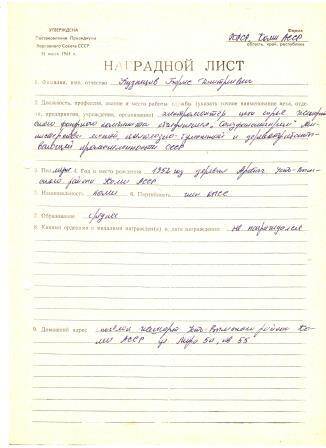 УТВЕРЖДЕНА
Постановлением Президиума
Верховного Совета СССР
31 июля 1961 г.
Форма
Коми АССР
область, край, республика
НАГРАДНОЙ ЛИСТ
1. Фамилия, имя, отчество Кузнецов Борис Дмитриевич
2. Должность, профессия, звание и место работы службы (указать точное наименование цеха, отде-
ла, предприятия, учреждения, организации) электромонтер
фанерного комбината объединения
Министерства лесной, целлюлозно-бумажной и деревообрабаты-
вающей промышленности СССР
3. Пол муж. 4. Год и место рождения 1952 год деревня Усть-Вым-
ского района Коми АССР
5. Национальность коми 6. Партийность член КПСС
7. Образование среднее
8. Какими орденами и медалями награжден(а) и дата награждения не награждался
9. Домашний адрес поселок Жешарт Усть-Вымского района Ко-
ми АССР ул Мира кв 55